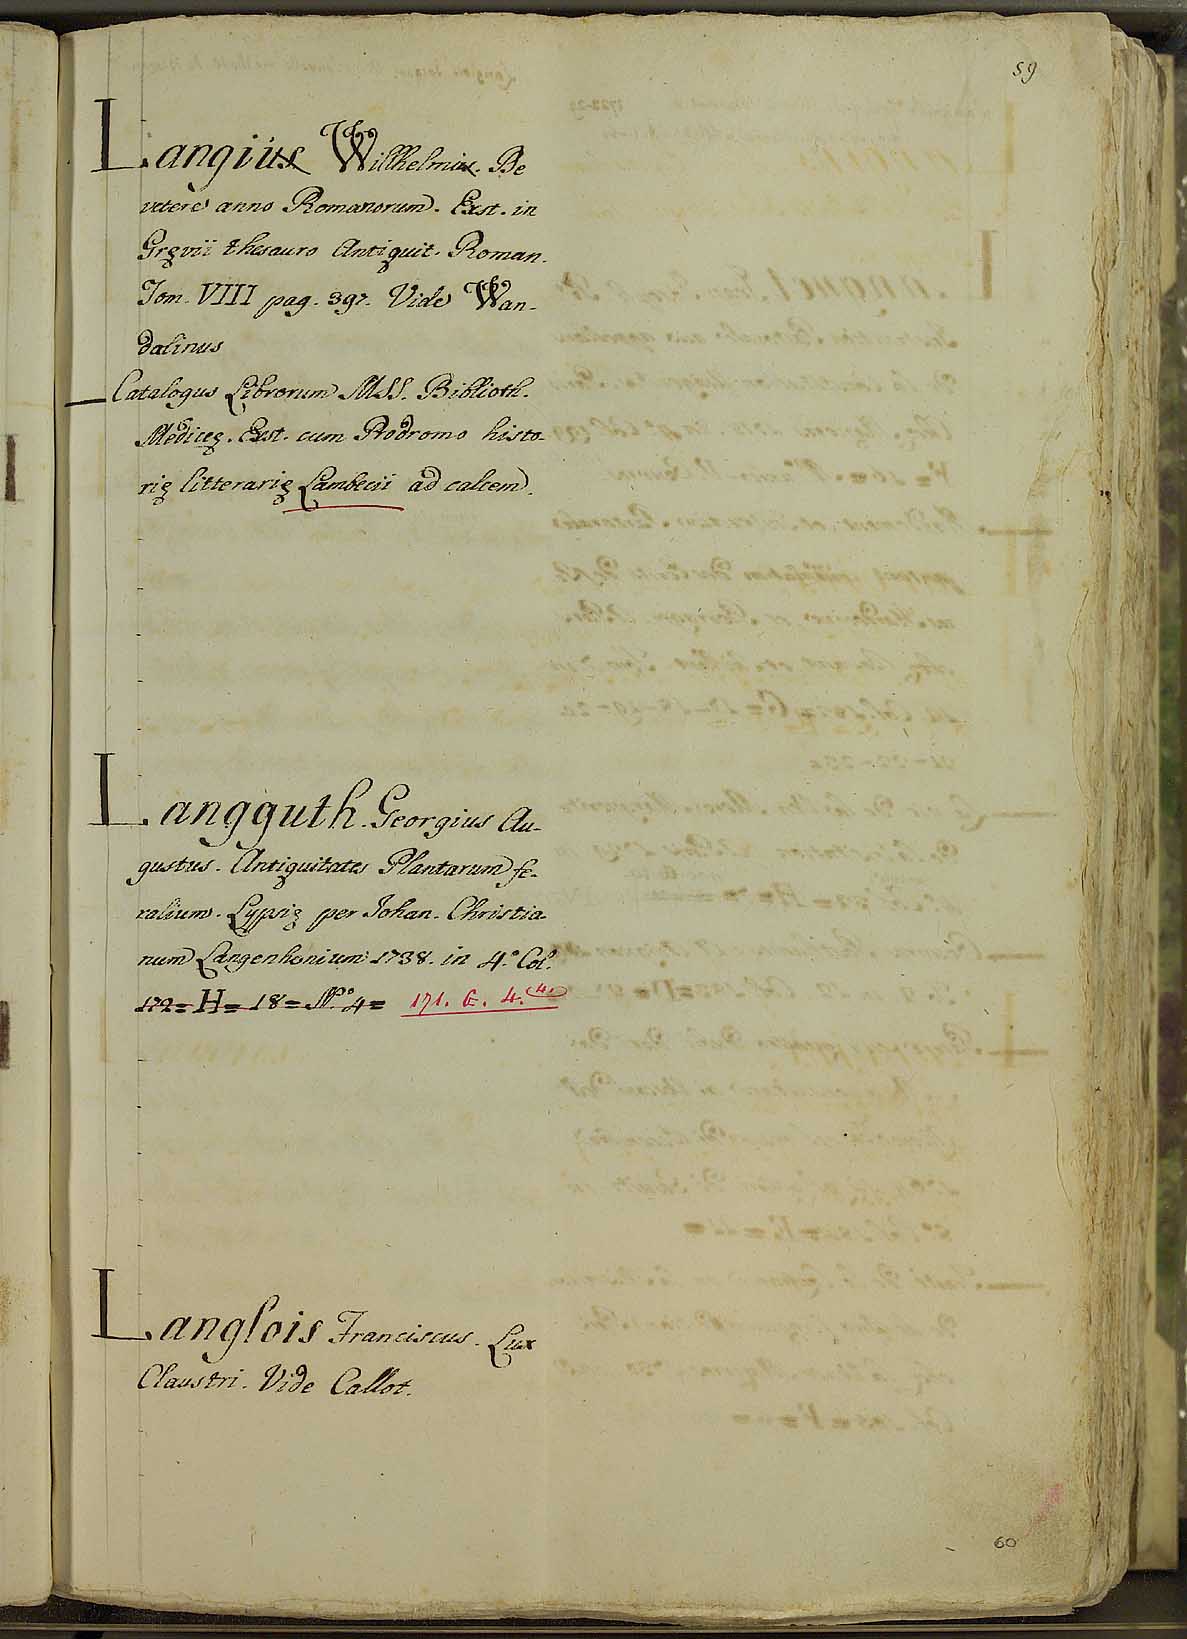 59
Langius Willhelmus. De
vetere anno Romanorum. Exst. in
Gręvii thesauro Antiquit. Roman.
Tom. VIII pag. 397. Vide Wan-
dalinus
— Catalogus Librorum MSS. Biblioth.
Mediceę. Exst. cum Prodromo histo-
rię litterarię Lambecii ad calcem.
Langguth. Georgius Au-
gustus. Antiquitates Plantarum fe-
ralium. Lypsię per Johan. Christia-
num Langenhenium 1738. in 4.º Col.
172 = H = 18 = Nº. 4 = 171. G. 4. (4.
Langlois Franciscus. Lux
Claustri. Vide Callot.
60